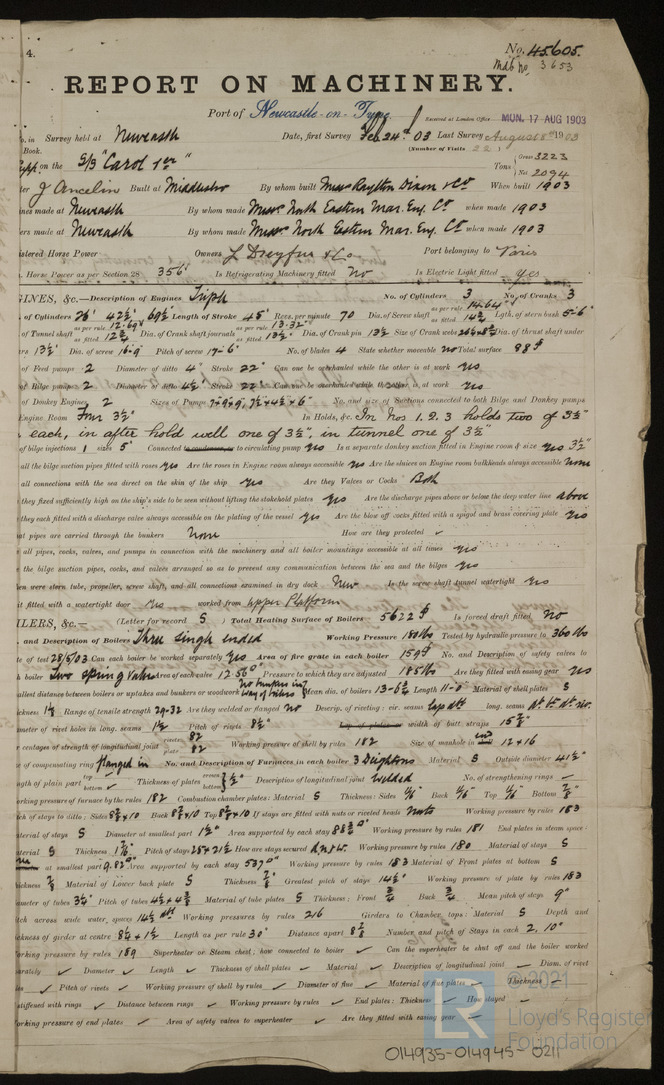 4.
No. 45605.
Mdb No. 3653
REPORT ON MACHINERY.
Port of Newcastle-on-Tyne
Received at London Office MON. 17 AUG 1903
No. in Survey held at Newcastle Date, first Survey Feb 24th 03 Last Survey August 8th 1903
Book. (Number of Visits 22)
Supp. on the S/S "Carol 1er" Tons Gross 3223 Net 2094
J Ancelin Built at Middlesbro By whom built Messrs Raylton Dixon & Co When built 1903
Engines made at Newcastle By whom made Messrs. North Eastern Mar. Eng. Co when made 1903
Boilers made at Newcastle By whom made Messrs. North Eastern Mar. Eng. Co when made 1903
Registered Horse Power Owners L Dreyfus & Co Port belonging to Paris
Horse Power as per Section 28 356 Is Refrigerating Machinery fitted No Is Electric Light fitted yes
GINES, &c.—Description of Engines Triple No. of Cylinders 3 No. of Cranks 3
of Cylinders 26" 42½" 69½" Length of Stroke 45" Revs. per minute 70 Dia. of Screw shaft as per rule 14.64 as fitted 14¾ Lgth. of stern bush 5-6"
of Tunnel shaft as per rule 12.69" as fitted 12¾ Dia. of Crank shaft journals as per rule 13.32" as fitted 13½" Dia. of Crank pin 13½ Size of Crank webs Dia. of thrust shaft under
13½ Dia. of screw 16-9 Pitch of screw 17-6" No. of blades 4 State whether moveable no Total surface 88
of Feed pumps 2 Diameter of ditto 4" Stroke 22" Can one be overhauled while the other is at work yes
of Bilge pumps 2 Diameter of ditto 4½" Stroke 22" Can one be overhauled while the other is at work yes
of Donkey Engines 2 Sizes of Pumps 7×9×9, 7½×4½×6" No. and size of Suctions connected to both Bilge and Donkey pumps
Engine Room Four 3½" In Holds, &c. In Nos 1. 2. 3 holds two of 3½"
each, in after hold well one of 3½", in tunnel one of 3½"
of bilge injections 1 sizes 5" Connected to condenser, or to circulating pump yes Is a separate donkey suction fitted in Engine room & size yes 3½"
all the bilge suction pipes fitted with roses yes Are the roses in Engine room always accessible yes Are the sluices on Engine room bulkheads always accessible none
all connections with the sea direct on the skin of the ship yes Are they Valves or Cocks Both
they fixed sufficiently high on the ship's side to be seen without lifting the stokehold plates yes Are the discharge pipes above or below the deep water line above
they each fitted with a discharge valve always accessible on the plating of the vessel yes Are the blow off cocks fitted with a spigot and brass covering plate yes
at pipes are carried through the bunkers None How are they protected ✓
all pipes, cocks, valves, and pumps in connection with the machinery and all boiler mountings accessible at all times yes
the bilge suction pipes, cocks, and valves arranged so as to prevent any communication between the sea and the bilges yes
en were stern tube, propeller, screw shaft, and all connections examined in dry dock New Is the screw shaft tunnel watertight yes
it fitted with a watertight door yes worked from upper Platform
ILERS, &c.— (Letter for record S) Total Heating Surface of Boilers 5622 Is forced draft fitted No
and Description of Boilers Three single ended Working Pressure 180 lbs Tested by hydraulic pressure to 360 lbs
te of test 28/5/03 Can each boiler be worked separately yes Area of fire grate in each boiler 159 No. and Description of safety valves to
h boiler Two spring valves Area of each valve 12.56 Pressure to which they are adjusted 185 lbs Are they fitted with easing gear yes
allest distance between boilers or uptakes and bunkers or woodwork No bunkers in way of boilers Mean dia. of boilers 13-6¾ Length 11-0 Material of shell plates S
ickness 1⅛ Range of tensile strength 29-32 Are they welded or flanged no Descrip. of riveting: cir. seams lap dbl long. seams dbl. bt. dbl. riv.
ameter of rivet holes in long. seams 1⅛ Pitch of rivets 8½" Lap of plates or width of butt straps 15¾"
centages of strength of longitudinal joint rivets 82 plate 82 Working pressure of shell by rules 182 Size of manhole in end 12×16
of compensating ring flanged in No. and Description of Furnaces in each boiler 3 Deightons Material S Outside diameter 41½"
gth of plain part top bottom ✓ Thickness of plates crown bottom ½" Description of longitudinal joint Welded No. of strengthening rings ✓
orking pressure of furnace by the rules 182 Combustion chamber plates: Material S Thickness: Sides Back Top Bottom
tch of stays to ditto: Sides Back Top If stays are fitted with nuts or riveted heads nuts Working pressure by rules 183
aterial of stays S Diameter at smallest part 1½" Area supported by each stay Working pressure by rules 181 End plates in steam space:
aterial S Thickness Pitch of stays How are stays secured Working pressure by rules 180 Material of stays S
at smallest part 9.82 Area supported by each stay 537 Working pressure by rules 183 Material of Front plates at bottom S
ickness ⅞ Material of Lower back plate S Thickness ⅞ Greatest pitch of stays 14½" Working pressure of plate by rules 183
ameter of tubes 3¼" Pitch of tubes 4½×4⅜ Material of tube plates S Thickness: Front ¾ Back ¾ Mean pitch of stays 9"
tch across wide water spaces 14½ Working pressures by rules 216 Girders to Chamber tops: Material S Depth and
ickness of girder at centre 8¼×1½ Length as per rule 30" Distance apart 8⅞ Number and pitch of Stays in each 2. 10"
orking pressure by rules 189 Superheater or Steam chest; how connected to boiler ✓ Can the superheater be shut off and the boiler worked
arately ✓ Diameter ✓ Length ✓ Thickness of shell plates ✓ Material ✓ Description of longitudinal joint ✓ Diam. of rivet
les ✓ Pitch of rivets ✓ Working pressure of shell by rules ✓ Diameter of flue ✓ Material of flue plates ✓ Thickness ✓
stiffened with rings ✓ Distance between rings ✓ Working pressure by rules ✓ End plates: Thickness ✓ How stayed ✓
orking pressure of end plates ✓ Area of safety valves to superheater ✓ Are they fitted with easing gear ✓
© 2021
Lloyd's Register
Foundation
014935-014945-0211